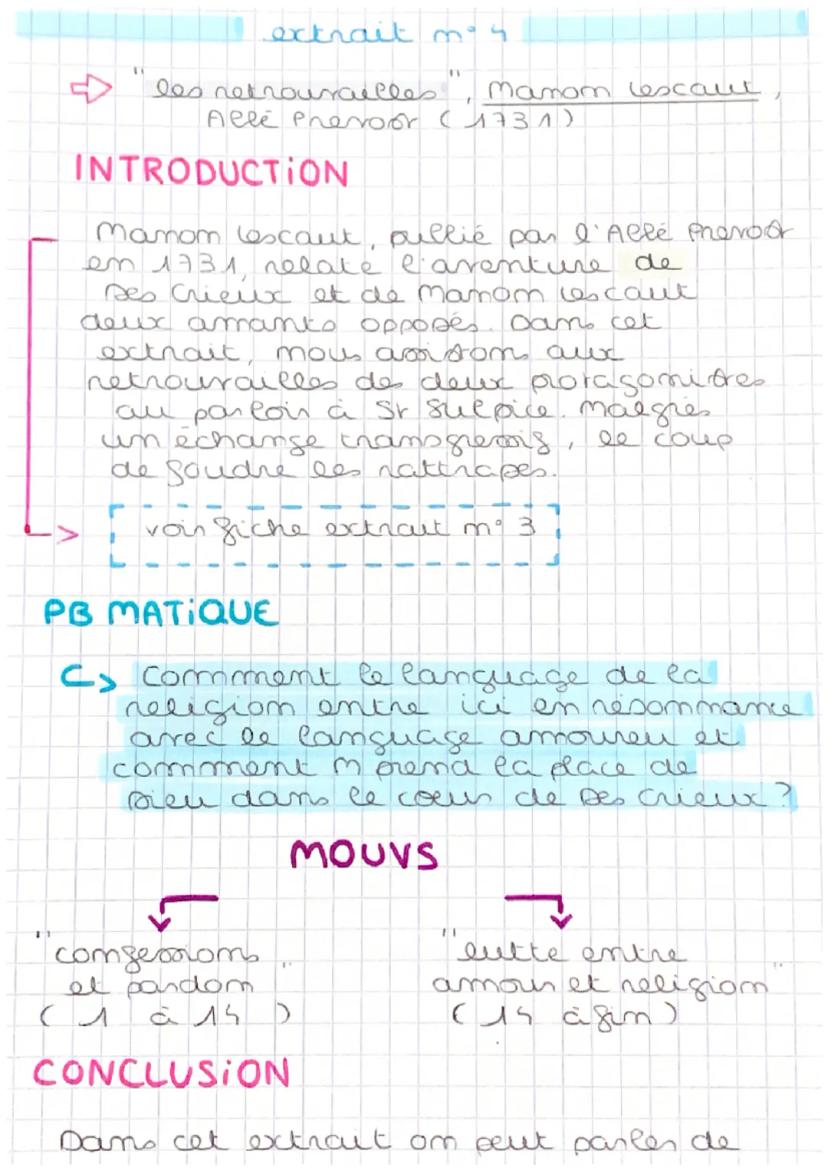 extrait n° 4
⇨ "les retrouvailles", Manon Lescaut,
Abbé Prevost (1731)
INTRODUCTION
Manon Lescaut, publié par l'Abbé Prevost
en 1731, relate l'aventure de
Des Grieux et de Manon Lescaut
deux amants opposés. Dans cet
extrait, nous assistons aux
retrouvailles des deux protagonistes
au parloir à St Sulpice. Malgrès
un échange transgressif, le coup
de foudre les rattrapes.
voir fiche extrait n° 3
PB MATIQUE
Comment le language de la
religion entre ici en résonnance
avec le language amoureu et
comment M prend la place de
Dieu dans le coeur de Des Grieux ?
MOUVS
"confessions
et pardon"
(1 à 14)
"lutte entre
amour et religion"
(14 à fin)
CONCLUSION
Dans cet extrait on peut parler de